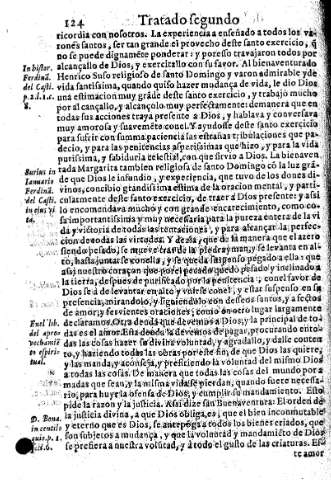 124 Tratado segundo
ricordia con nosotros. La experiencia a enseñado a todos los va-
rones santos, ser tan grande el provecho deste santo exercicio, q̃
no se puede dignamẽte ponderar: y por esso travajaron todos por
alcançallo de Dios, y exercitallo con su favor. Al bienaventurado
Henrico Suso religioso de santo Domingo y varon admirable y de
vida santissima, quando quiso hazer mudança de vida, le dio Dios
una estimacion muy grãde deste santo exercicio, y trabajó mucho
por alcançallo, y alcançolo muy perfectamente: demanera que en
todas sus acciones traya presente a Dios, y hablava y conversava
muy amorosa y suavemẽte con el. Y ayudose deste santo exercicio
para sufrir con summa paciencia las
decio, y para las penitencias asperissimas que hizo, y para la vida
purissima, y sabiduria celestial, con que sirvio a Dios. La bienaven-
tada Margarita tambien religiosa de santo Domingo cõ la luz grã-
de que Dios le infundio, y experiencia, que tuvo de los dones di-
vinos, concibio grandissima estima de la oracion mental, y parti-
cularmente deste santo exercicio, de traer a Dios presente: y assi
lo encomendava mucho y con grande encarecimiento, como co-
sa importantissima y muy necessaria para la pureza entera de la vi-
da y victoria de todas las tentaciones, y para alcançar la perfec-
cion de todas las virtudes. Y dezia que de la manera que el azero
siendo pesado, se mueve tras de la piedra yman, y se levanta en al-
to, hasta juntarse con ella, y se queda suspenso pegado a ella: que
assi nuestro coraçon que por el pecado quedó pesado y inclinado a
la tierra, despues de purificado por la penitencia, con el favor de
Dios se a de levantar en alto y unirse con el, y estar suspenso en su
presencia, mirandolo, y siguiendolo con desseos santos, y afectos
de amor, y fervientes oraciones, como en otro lugar largamente
declaramos. Otra deuda que devemos a Dios, y la principal de to-
das es el amor. Esta deuda le devemos de pagar, procurando en to-
das las cosas hazer su divina voluntad, y agradallo, y dalle conten-
to, y haziendo todas las obras por este fin, de que Dios las quiere,
y las manda, y aconseja, y prefiriendo la voluntad del mismo Dios
a todas las cosas. De manera que todas las cosas del mundo por a-
madas que sean, y la misma vida se pierdan, quando fuere necessa-
rio, para huyr la ofensa de Dios, y cumplir su mandamiento. Esto
pide la razon y la justicia. Assi dize san Buenaventura: El orden de
la justicia divina, a que Dios obliga, es, que el bien inconmutable
y eterno que es Dios, se antepõga a todos los bienes criados, que
son subjetos a mudança, y que la voluntad y mandamiẽto de Dios
se prefiera a nuestra volũtad, y à todo el gusto de las criaturas. Es-
te amor
In histor.
Ferdinã.
del Casti.
p.2.l.1.c.
8.
Ianuario
Ferdinã.
del Casti.
En el lib.
del apro-
vechamiẽ
to espiri-
tual.
D. Bona.